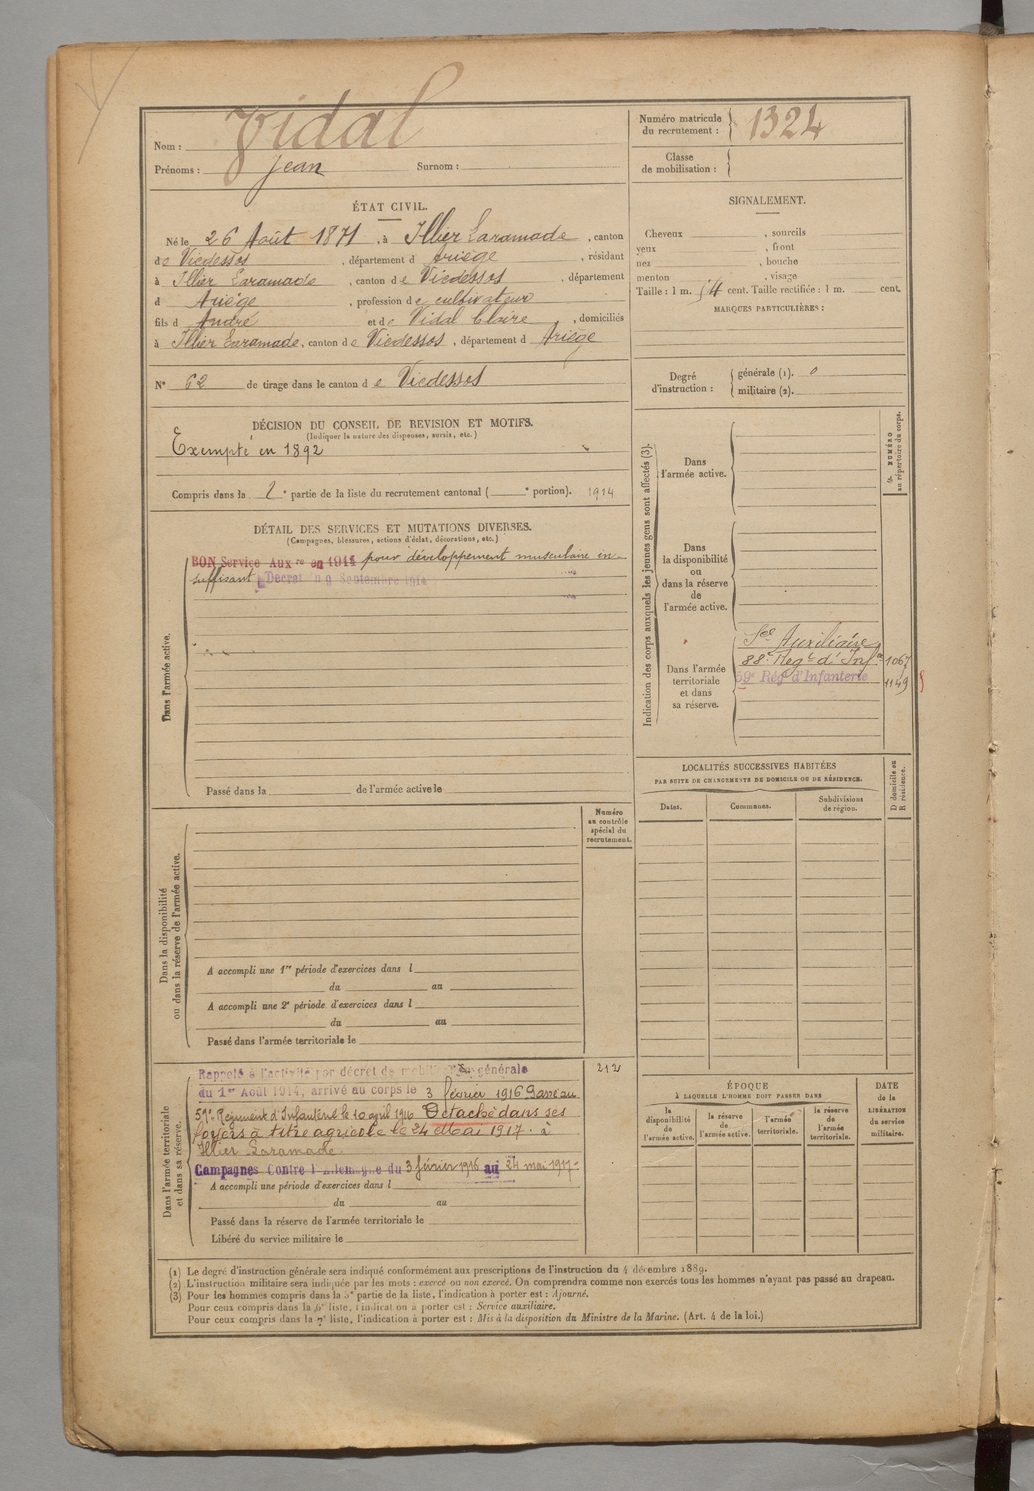 Nom : Vidal
Prénoms : Jean Surnom :
Numéro matricule du recrutement : 1324
Classe de mobilisation :
ÉTAT CIVIL.
Né le 26 Août 1871, à Illier Laramade, canton
de Vicdessos, département d Ariège, résidant
à Illier Laramade, canton de Vicdessos, département
d Ariège, profession de cultivateur
fils d André et de Vidal Claire, domiciliés
à Illier Laramade, canton de Vicdessos, département d Ariège
N° 62 de tirage dans le canton de Vicdessos
SIGNALEMENT.
Cheveux , sourcils
yeux , front
nez , bouche
menton , visage
Taille : 1 m. 54 cent. Taille rectifiée : 1 m. cent.
MARQUES PARTICULIÈRES :
Degré d'instruction : générale (1). 0
militaire (2).
DÉCISION DU CONSEIL DE REVISION ET MOTIFS.
(Indiquer la nature des dispenses, sursis, etc.)
Exempté en 1892
Compris dans la partie de la liste du recrutement cantonal ( portion). 1914
DÉTAIL DES SERVICES ET MUTATIONS DIVERSES.
(Campagnes, blessures, actions d'éclat, décorations, etc.)
Dans l'armée active.
BON Service Aux re en 1914 pour développement musculaire in-
suffisant Décret du 9 Septembre 1914
Passé dans la de l'armée active le
Indication des corps auxquels les jeunes gens sont affectés (3).
NUMÉRO au répertoire du corps.
Dans l'armée active.
Dans la disponibilité ou dans la réserve de l'armée active.
Dans l'armée territoriale et dans sa réserve.
Sce Auxiliaire
88e Regt d'Infie 1067
59e Rég d'Infanterie 1149
LOCALITÉS SUCCESSIVES HABITÉES
PAR SUITE DE CHANGEMENTS DE DOMICILE OU DE RÉSIDENCE.
Dates. Communes. Subdivisions de région. D domicile ou R résidence.
Numéro au contrôle spécial du recrutement.
Dans la disponibilité ou dans la réserve de l'armée active.
A accompli une 1re période d'exercices dans l
du au
A accompli une 2e période d'exercices dans l
du au
Passé dans l'armée territoriale le
Dans l'armée territoriale et dans sa réserve.
Rappelé à l'activité par décret de mobilisation générale 212
du 1er Août 1914, arrivé au corps le 3 février 1916 Passé au
59e Régiment d'Infanterie le 10 avril 1916 Détaché dans ses
foyers à titre agricole le 24 Mai 1917. à
Illier Laramade.
Campagnes Contre l'Allemagne du 3 février 1916 au 24 mai 1917-
A accompli une période d'exercices dans l
du au
Passé dans la réserve de l'armée territoriale le
Libéré du service militaire le
ÉPOQUE
À LAQUELLE L'HOMME DOIT PASSER DANS
la disponibilité de l'armée active.
la réserve de l'armée active.
l'armée territoriale.
la réserve de l'armée territoriale.
DATE de la LIBÉRATION du service militaire.
(1) Le degré d'instruction générale sera indiqué conformément aux prescriptions de l'instruction du 4 décembre 1889.
(2) L'instruction militaire sera indiquée par les mots : exercé ou non exercé. On comprendra comme non exercés tous les hommes n'ayant pas passé au drapeau.
(3) Pour les hommes compris dans la 5e partie de la liste, l'indication à porter est : Ajourné.
Pour ceux compris dans la 6e liste, l'indication à porter est : Service auxiliaire.
Pour ceux compris dans la 7e liste, l'indication à porter est : Mis à la disposition du Ministre de la Marine. (Art. 4 de la loi.)